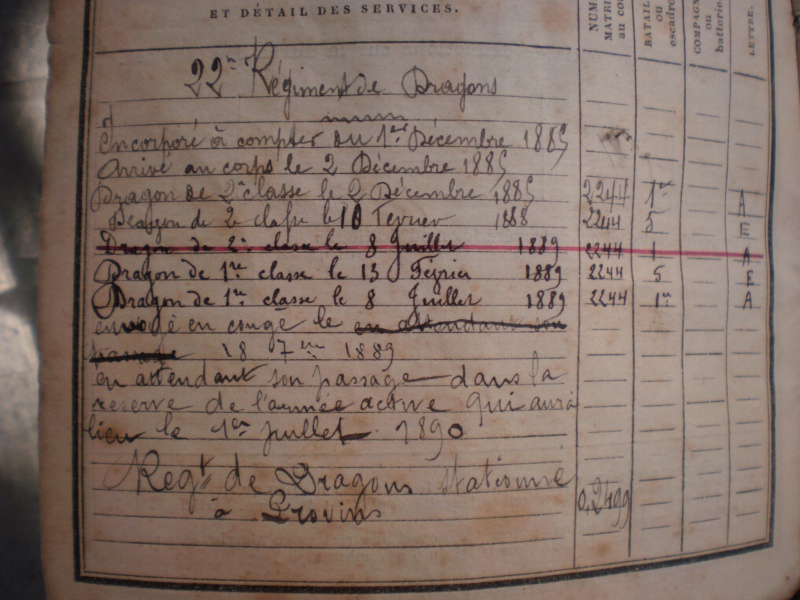 ET DÉTAIL DES SERVICES.
NUM
MATRI
au co
BATAIL
ou
escadro
COMPAGN
ou
batterie
LETTRE.
22e Régiment de Dragons
à
Encorporé à compter du 1er Décembre 1885
Arrivé au corps le 2 Décembre 1885
Dragon de 2e classe le 2 Décembre 1885 2244 1er A
Dragon de 2 classe le 10 Fevrier 1888 2244 5 E
Dragon de 2e classe le 8 Juillet 1889 2244 1 A
Dragon de 1re classe le 13 Février 1889 2244 5 E
Dragon de 1re classe le 8 Juillet 1889 2244 1er A
envoyé en congé le en attendant son
passage 18 7em 1889
en attendant son passage dans la
reserve de l'armée active qui aura
lieu le 1er juillet 1890
Regt de Dragons stationné
à Provins
0,2499